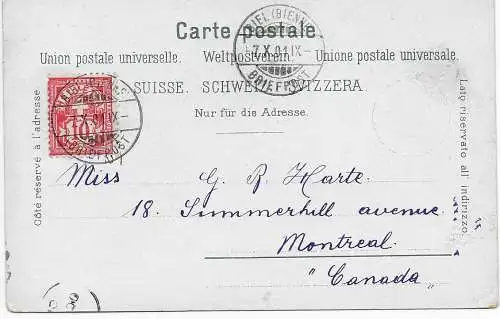 Carte postale.
Union postale universelle. Weltpostverein. Unione postale universale.
SUISSE. SCHWEIZ. SVIZZERA.
Nur für die Adresse.
Côté réservé à l'adresse
Lato riservato all' indirizzo.
BIEL (BIENNE)
7.X.01.IX-
BRIEFPOST
10
BRIEFPOST
Miss G. R. Harte.
18. Summerhill avenue.
Montreal.
"Canada"